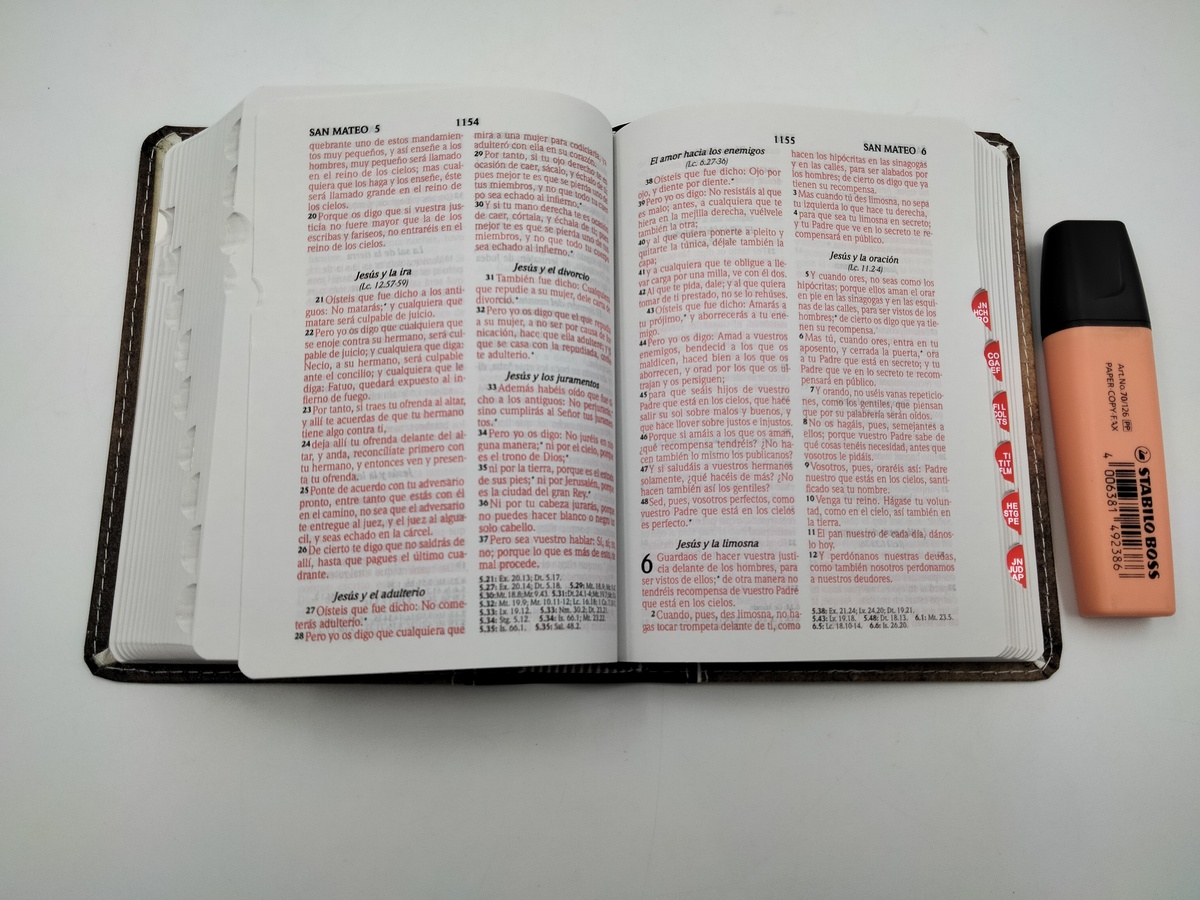 SAN MATEO 5
1154
quebrante uno de estos mandamien-
tos muy pequeños, y así enseñe a los
hombres, muy pequeño será llamado
en el reino de los cielos; mas cual-
quiera que los haga y los enseñe, éste
será llamado grande en el reino de
los cielos.
20 Porque os digo que si vuestra jus-
ticia no fuere mayor que la de los
escribas y fariseos, no entraréis en el
reino de los cielos.
Jesús y la ira
(Lc. 12.57-59)
21 Oísteis que fue dicho a los anti-
guos: No matarás;* y cualquiera que
matare será culpable de juicio.
22 Pero yo os digo que cualquiera que
se enoje contra su hermano, será cul-
pable de juicio; y cualquiera que diga:
Necio, a su hermano, será culpable
ante el concilio; y cualquiera que le
diga: Fatuo, quedará expuesto al in-
fierno de fuego.
23 Por tanto, si traes tu ofrenda al altar,
y allí te acuerdas de que tu hermano
tiene algo contra ti,
24 deja allí tu ofrenda delante del al-
tar, y anda, reconcíliate primero con
tu hermano, y entonces ven y presen-
ta tu ofrenda.
25 Ponte de acuerdo con tu adversario
pronto, entre tanto que estás con él
en el camino, no sea que el adversario
te entregue al juez, y el juez al algua-
cil, y seas echado en la cárcel.
26 De cierto te digo que no saldrás de
allí, hasta que pagues el último cua-
drante.
Jesús y el adulterio
27 Oísteis que fue dicho: No come-
terás adulterio.*
28 Pero yo os digo que cualquiera que
mira a una mujer para codiciarla, ya
adulteró con ella en su corazón.
29 Por tanto, si tu ojo derecho te es
ocasión de caer, sácalo, y échalo de ti;
pues mejor te es que se pierda uno de
tus miembros, y no que todo tu cuer-
po sea echado al infierno.*
30 Y si tu mano derecha te es ocasión
de caer, córtala, y échala de ti; pues
mejor te es que se pierda uno de tus
miembros, y no que todo tu cuerpo
sea echado al infierno.*
Jesús y el divorcio
31 También fue dicho: Cualquiera
que repudie a su mujer, dele carta de
divorcio.*
32 Pero yo os digo que el que repudia
a su mujer, a no ser por causa de for-
nicación, hace que ella adultere; y el
que se casa con la repudiada, come-
te adulterio.*
Jesús y los juramentos
33 Además habéis oído que fue di-
cho a los antiguos: No perjurarás,*
sino cumplirás al Señor tus juramen-
34 Pero yo os digo: No juréis en nin-
guna manera;* ni por el cielo, porque
es el trono de Dios;*
35 ni por la tierra, porque es el estrado
de sus pies;* ni por Jerusalén, porque
es la ciudad del gran Rey.*
36 Ni por tu cabeza jurarás, porque
no puedes hacer blanco o negro un
solo cabello.
37 Pero sea vuestro hablar: Sí, sí; no,
no; porque lo que es más de esto, de
mal procede.
5.21: Ex. 20.13; Dt. 5.17.
5.27: Ex. 20.14; Dt. 5.18. 5.29: Mt. 18.9;
5.30: Mt. 18.8; Mr. 9.43. 5.31: Dt. 24.1-4;
5.32: Mt. 19.9; Mr. 10.11-12; Lc. 16.18;
5.33: Lv. 19.12. 5.33: Nm. 30.2; Dt. 23.21.
5.34: Stg. 5.12. 5.34: Is. 66.1; Mt. 23.22.
5.35: Is. 66.1. 5.35: Sal. 48.2.
1155
SAN MATEO 6
El amor hacia los enemigos
(Lc. 6.27-36)
38 Oísteis que fue dicho: Ojo por
ojo, y diente por diente.*
39 Pero yo os digo: No resistáis al que
es malo; antes, a cualquiera que te
hiera en la mejilla derecha, vuélvele
también la otra;
40 y al que quiera ponerte a pleito y
quitarte la túnica, déjale también la
capa;
41 y a cualquiera que te obligue a lle-
var carga por una milla, ve con él dos.
42 Al que te pida, dale; y al que quiera
tomar de ti prestado, no se lo rehúses.
43 Oísteis que fue dicho: Amarás a
tu prójimo,* y aborrecerás a tu ene-
migo.
44 Pero yo os digo: Amad a vuestros
enemigos, bendecid a los que os
maldicen, haced bien a los que os
aborrecen, y orad por los que os ul-
trajan y os persiguen;
45 para que seáis hijos de vuestro
Padre que está en los cielos, que hace
salir su sol sobre malos y buenos, y
que hace llover sobre justos e injustos.
46 Porque si amáis a los que os aman,
¿qué recompensa tendréis? ¿No ha-
cen también lo mismo los publicanos?
47 Y si saludáis a vuestros hermanos
solamente, ¿qué hacéis de más? ¿No
hacen también así los gentiles?
48 Sed, pues, vosotros perfectos, como
vuestro Padre que está en los cielos
es perfecto.*
Jesús y la limosna
6 Guardaos de hacer vuestra justi-
cia delante de los hombres, para
ser vistos de ellos;* de otra manera no
tendréis recompensa de vuestro Padre
que está en los cielos.
2 Cuando, pues, des limosna, no ha-
gas tocar trompeta delante de ti, como
hacen los hipócritas en las sinagogas
y en las calles, para ser alabados por
los hombres; de cierto os digo que ya
tienen su recompensa.
3 Mas cuando tú des limosna, no sepa
tu izquierda lo que hace tu derecha,
4 para que sea tu limosna en secreto;
y tu Padre que ve en lo secreto te re-
compensará en público.
Jesús y la oración
(Lc. 11.2-4)
5 Y cuando ores, no seas como los
hipócritas; porque ellos aman el orar
en pie en las sinagogas y en las esqui-
nas de las calles, para ser vistos de los
hombres;* de cierto os digo que ya tie-
nen su recompensa.
6 Mas tú, cuando ores, entra en tu
aposento, y cerrada la puerta,* ora
a tu Padre que está en secreto; y tu
Padre que ve en lo secreto te recom-
pensará en público.
7 Y orando, no uséis vanas repeticio-
nes, como los gentiles, que piensan
que por su palabrería serán oídos.
8 No os hagáis, pues, semejantes a
ellos; porque vuestro Padre sabe de
qué cosas tenéis necesidad, antes que
vosotros le pidáis.
9 Vosotros, pues, oraréis así: Padre
nuestro que estás en los cielos, santi-
ficado sea tu nombre.
10 Venga tu reino. Hágase tu volun-
tad, como en el cielo, así también en
la tierra.
11 El pan nuestro de cada día, dános-
lo hoy.
12 Y perdónanos nuestras deudas,
como también nosotros perdonamos
a nuestros deudores.
5.38: Ex. 21.24; Lv. 24.20; Dt. 19.21.
5.43: Lv. 19.18. 5.48: Dt. 18.13. 6.1: Mt. 23.5.
6.5: Lc. 18.10-14. 6.6: Is. 26.20.
JN
HCH
RO
CO
GA
EF
FIL
COL
TS
TI
TIT
FLM
HE
STG
PE
JN
JUD
AP
Art.No. 70/126 PP
PAPER·COPY·FAX
STABILO BOSS
4 006381 492386